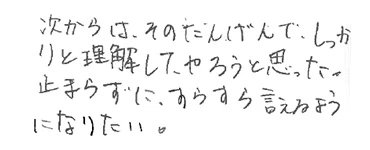 次からは、そのたんげんで、しっか
りと理解して、やろうと思った。
止まらずに、すらすら言えるよう
になりたい。